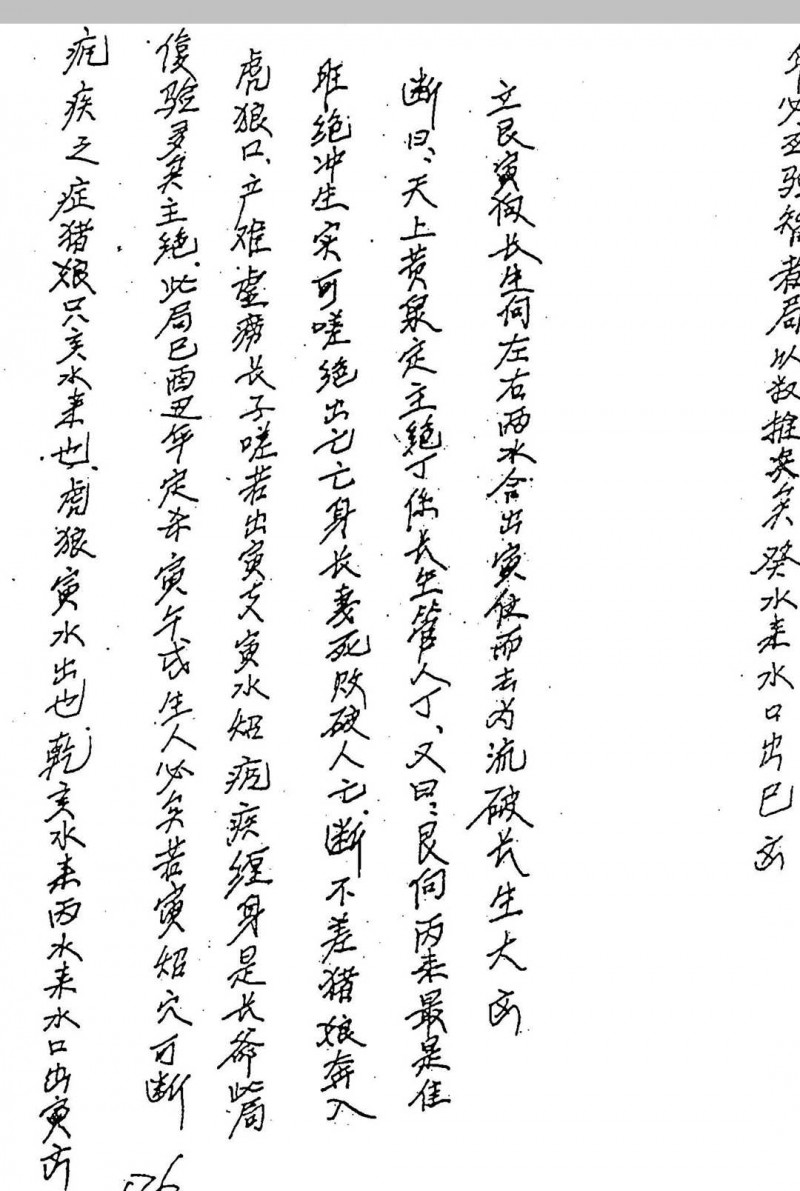 年必正验智者局以数推矣癸水来水口出巳凶
立艮寅向长生向左右两水合出寅位而去为流破长生大凶
断曰、天上黄泉定主绝丁係长生管人丁、又曰、艮向丙来最是佳
旺绝冲生实可嗟绝出亡亡身长妻死败破人亡、断不差猪娘奔入
虎狼口、产难虚痨长子嗟若出寅支寅水炤疯疾缠身是长爺此局
復验多矣主绝、此局巳酉丑年定杀寅午戌生人必矣若寅炤穴可断
疯疾之症猪娘只亥水来也、虎狼寅水出也、乾亥水来丙水来水口出寅凶